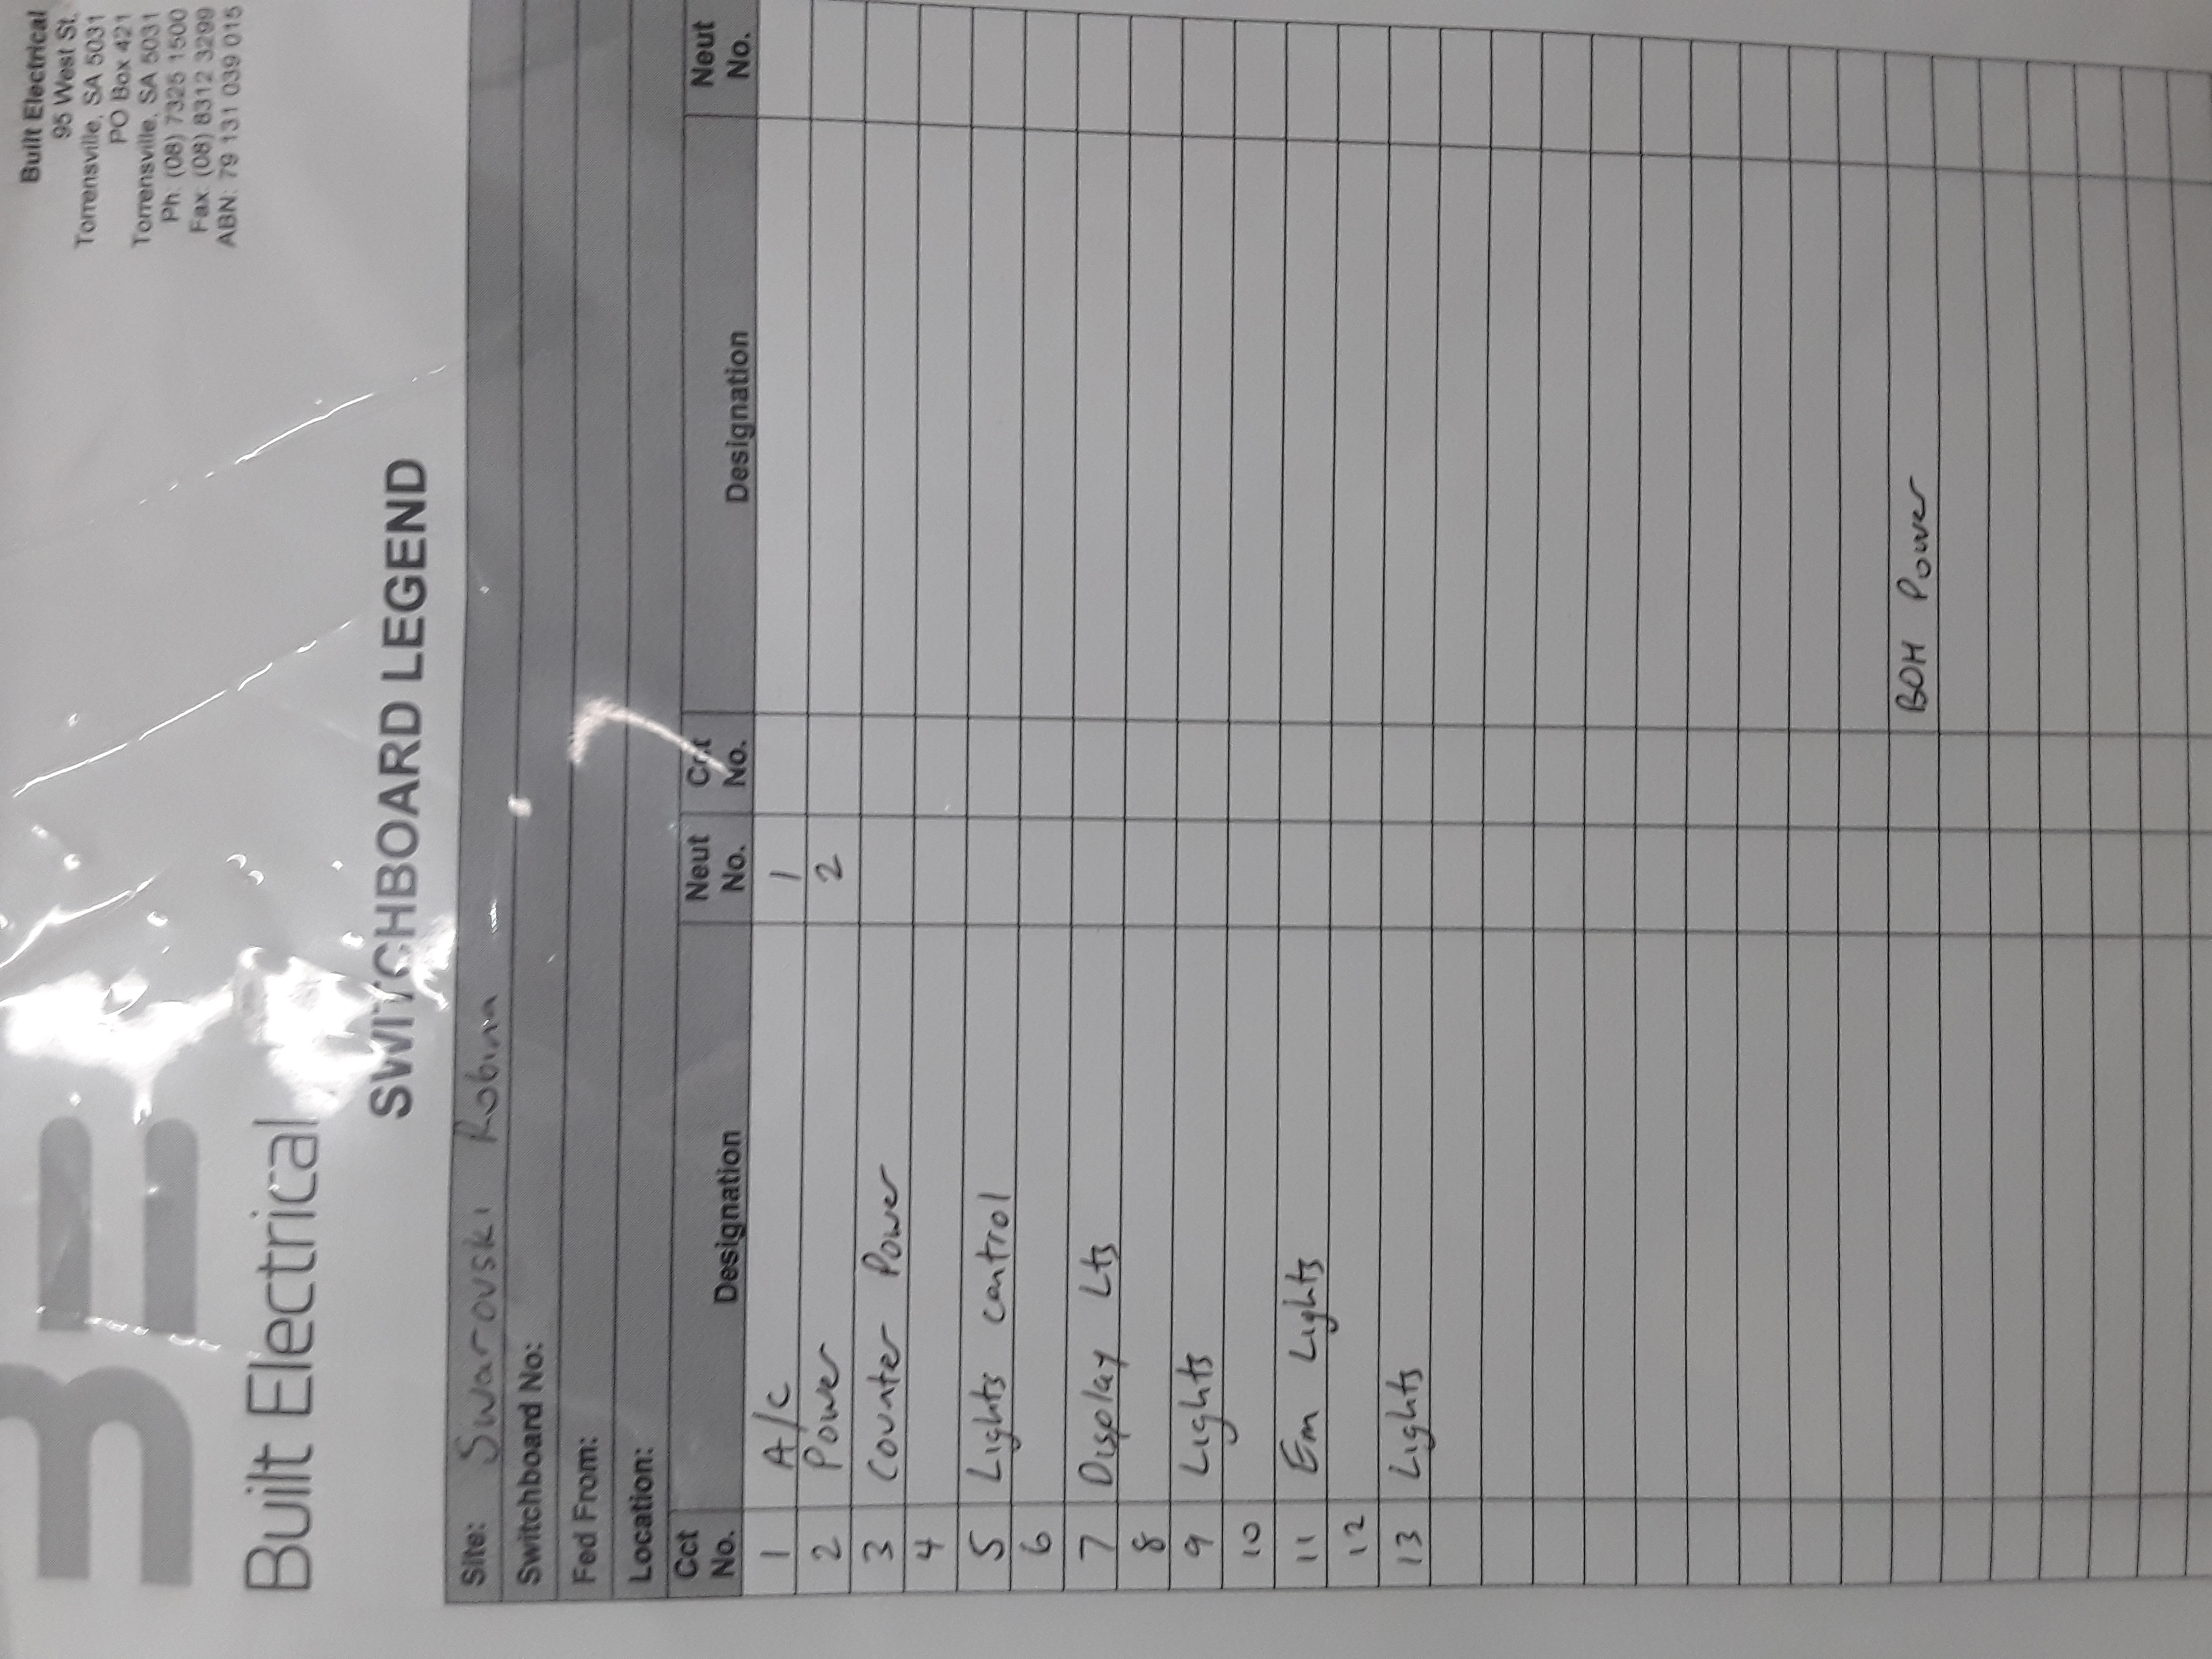 BE
Built Electrical
Built Electrical
95 West St,
Torrensville, SA 5031
PO Box 421
Torrensville, SA 5031
Ph: (08) 7325 1500
Fax: (08) 8312 3299
ABN: 79 131 039 015
SWITCHBOARD LEGEND
Site: Swarovski Robina
Switchboard No:
Fed From:
Location:
Cct No. Designation Neut No. Cct No. Designation Neut No.
1 A/C 1
2 Power 2
3 Counter Power
4
5 Lights control
6
7 Display Lts
8
9 Lights
10
11 Em Lights
12
13 Lights
BOH Power